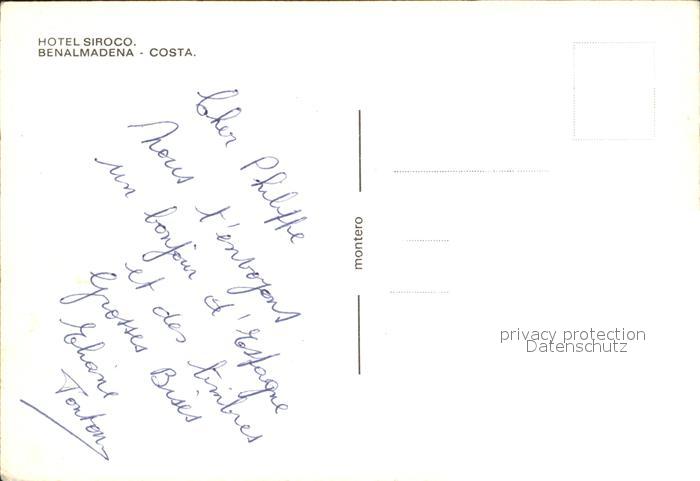 HOTEL SIROCO.
BENALMADENA - COSTA.
Cher Philippe
Nous t'envoyons
un bonjour d'Espagne
et des timbres
Grosses Bises
Tonton
montero
privacy protection
Datenschutz